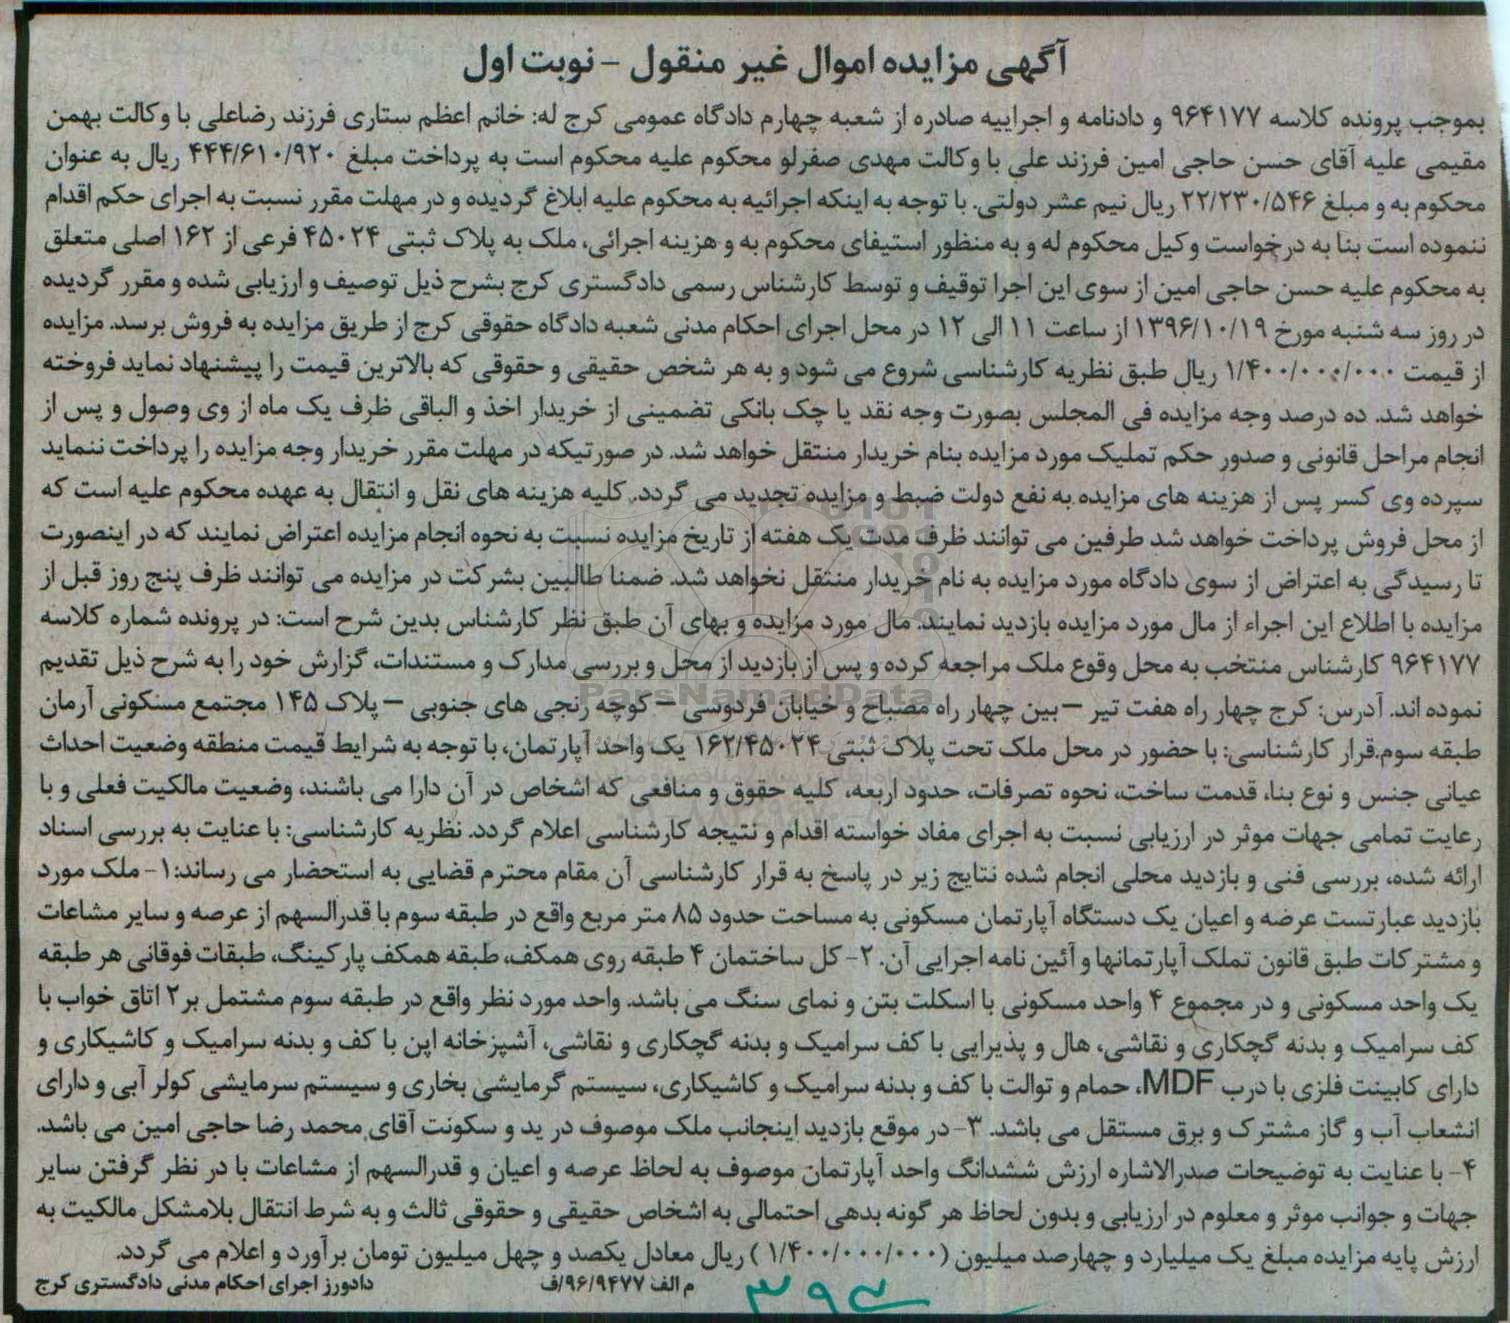 آگهی مزایده اموال غیر منقول - نوبت اول
بموجب پرونده کلاسه ۹۶۴۱۷۷ و دادنامه و اجراییه صادره از شعبه چهارم دادگاه عمومی کرج له: خانم اعظم ستاری فرزند رضاعلی با وکالت بهمن
مقیمی علیه آقای حسن حاجی امین فرزند علی با وکالت مهدی صفرلو محکوم علیه محکوم است به پرداخت مبلغ ۴۴۴/۶۱۰/۹۲۰ ریال به عنوان
محکوم به و مبلغ ۲۲/۲۳۰/۵۴۶ ریال نیم عشر دولتی. با توجه به اینکه اجرائیه به محکوم علیه ابلاغ گردیده و در مهلت مقرر نسبت به اجرای حکم اقدام
ننموده است بنا به درخواست وکیل محکوم له و به منظور استیفای محکوم به و هزینه اجرائی، ملک به پلاک ثبتی ۴۵۰۲۴ فرعی از ۱۶۲ اصلی متعلق
به محکوم علیه حسن حاجی امین از سوی این اجرا توقیف و توسط کارشناس رسمی دادگستری کرج بشرح ذیل توصیف و ارزیابی شده و مقرر گردیده
در روز سه شنبه مورخ ۱۳۹۶/۱۰/۱۹ از ساعت ۱۱ الی ۱۲ در محل اجرای احکام مدنی شعبه دادگاه حقوقی کرج از طریق مزایده به فروش برسد. مزایده
از قیمت ۱/۴۰۰/۰۰۰/۰۰۰ ریال طبق نظریه کارشناسی شروع می شود و به هر شخص حقیقی و حقوقی که بالاترین قیمت را پیشنهاد نماید فروخته
خواهد شد. ده درصد وجه مزایده فی المجلس بصورت وجه نقد یا چک بانکی تضمینی از خریدار اخذ و الباقی ظرف یک ماه از وی وصول و پس از
انجام مراحل قانونی و صدور حکم تملیک مورد مزایده بنام خریدار منتقل خواهد شد. در صورتیکه در مهلت مقرر خریدار وجه مزایده را پرداخت ننماید
سپرده وی کسر پس از هزینه های مزایده به نفع دولت ضبط و مزایده تجدید می گردد. کلیه هزینه های نقل و انتقال به عهده محکوم علیه است که
از محل فروش پرداخت خواهد شد طرفین می توانند ظرف مدت یک هفته از تاریخ مزایده نسبت به نحوه انجام مزایده اعتراض نمایند که در اینصورت
تا رسیدگی به اعتراض از سوی دادگاه مورد مزایده به نام خریدار منتقل نخواهد شد. ضمنا طالبین بشرکت در مزایده می توانند ظرف پنج روز قبل از
مزایده با اطلاع این اجراء از مال مورد مزایده بازدید نمایند. مال مورد مزایده و بهای آن طبق نظر کارشناس بدین شرح است: در پرونده شماره کلاسه
۹۶۴۱۷۷ کارشناس منتخب به محل وقوع ملک مراجعه کرده و پس از بازدید از محل و بررسی مدارک و مستندات، گزارش خود را به شرح ذیل تقدیم
ParsNamadData
نموده اند. آدرس: کرج چهار راه هفت تیر – بین چهار راه مصباح و خیابان فردوسی – کوچه رنجی های جنوبی – پلاک ۱۴۵ مجتمع مسکونی آرمان
طبقه سوم.قرار کارشناسی: با حضور در محل ملک تحت پلاک ثبتی ۱۶۲/۴۵۰۲۴ یک واحد آپارتمان، با توجه به شرایط قیمت منطقه وضعیت احداث
عیانی جنس و نوع بنا، قدمت ساخت، نحوه تصرفات، حدود اربعه، کلیه حقوق و منافعی که اشخاص در آن دارا می باشند، وضعیت مالکیت فعلی و با
رعایت تمامی جهات موثر در ارزیابی نسبت به اجرای مفاد خواسته اقدام و نتیجه کارشناسی اعلام گردد. نظریه کارشناسی: با عنایت به بررسی اسناد
ارائه شده، بررسی فنی و بازدید محلی انجام شده نتایج زیر در پاسخ به قرار کارشناسی آن مقام محترم قضایی به استحضار می رساند:۱- ملک مورد
بازدید عبارتست عرضه و اعیان یک دستگاه آپارتمان مسکونی به مساحت حدود ۸۵ متر مربع واقع در طبقه سوم با قدرالسهم از عرصه و سایر مشاعات
و مشترکات طبق قانون تملک آپارتمانها و آئین نامه اجرایی آن. ۲- کل ساختمان ۴ طبقه روی همکف، طبقه همکف پارکینگ، طبقات فوقانی هر طبقه
یک واحد مسکونی و در مجموع ۴ واحد مسکونی با اسکلت بتن و نمای سنگ می باشد. واحد مورد نظر واقع در طبقه سوم مشتمل بر ۲ اتاق خواب با
کف سرامیک و بدنه گچکاری و نقاشی، هال و پذیرایی با کف سرامیک و بدنه گچکاری و نقاشی، آشپزخانه اپن با کف و بدنه سرامیک و کاشیکاری و
دارای کابینت فلزی با درب MDF، حمام و توالت با کف و بدنه سرامیک و کاشیکاری، سیستم گرمایشی بخاری و سیستم سرمایشی کولر آبی و دارای
انشعاب آب و گاز مشترک و برق مستقل می باشد. ۳- در موقع بازدید اینجانب ملک موصوف در ید و سکونت آقای محمد رضا حاجی امین می باشد.
۴- با عنایت به توضیحات صدرالاشاره ارزش ششدانگ واحد آپارتمان موصوف به لحاظ عرصه و اعیان و قدرالسهم از مشاعات با در نظر گرفتن سایر
جهات و جوانب موثر و معلوم در ارزیابی و بدون لحاظ هر گونه بدهی احتمالی به اشخاص حقیقی و حقوقی ثالث و به شرط انتقال بلامشکل مالکیت به
ارزش پایه مزایده مبلغ یک میلیارد و چهارصد میلیون (۱/۴۰۰/۰۰۰/۰۰۰) ریال معادل یکصد و چهل میلیون تومان برآورد و اعلام می گردد.
م الف ۹۶/۹۴۷۷/ف دادورز اجرای احکام مدنی دادگستری کرج